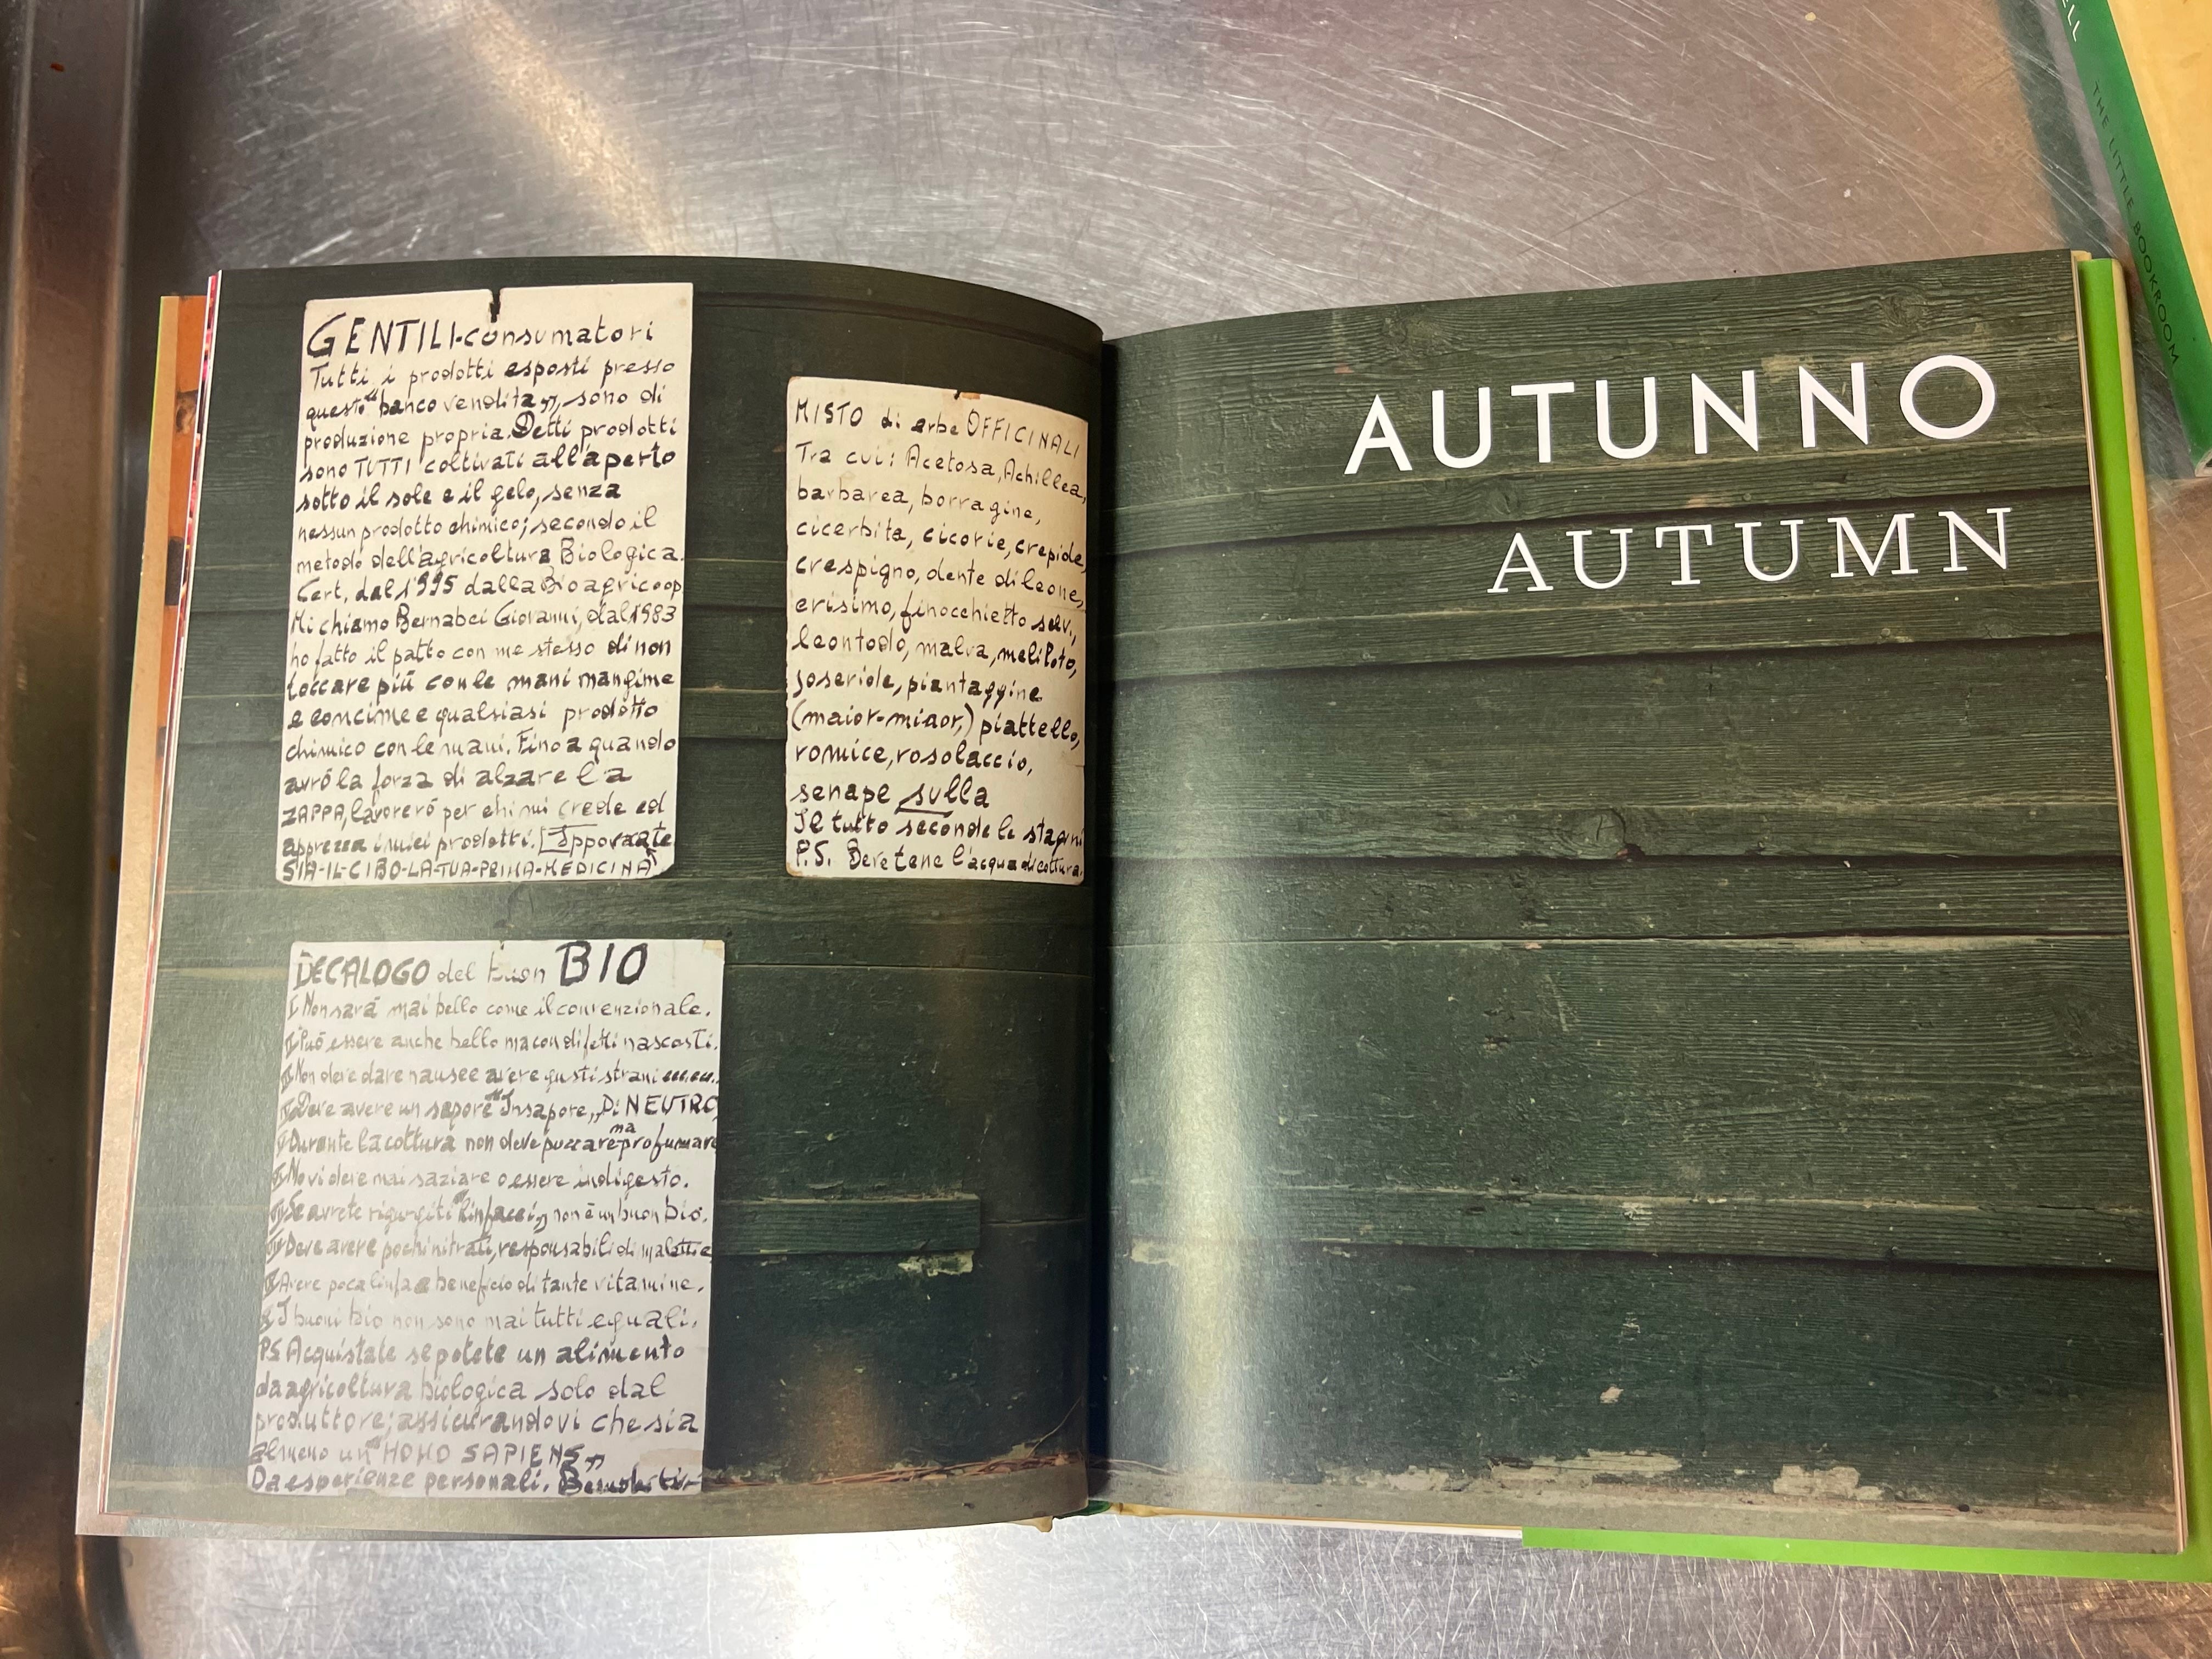 GENTILI-consumatori
Tutti i prodotti esposti presso
questo "banco vendita", sono di
produzione propria. Detti prodotti
sono TUTTI coltivati all'aperto
sotto il sole e il gelo, senza
nessun prodotto chimico; secondo il
metodo dell'agricoltura Biologica.
Cert. dal 1995 dalla Bioagricoop
Mi chiamo Bernabei Giovanni, dal 1983
ho fatto il patto con me stesso di non
toccare più con le mani mangime
e concime e qualsiasi prodotto
chimico con le mani. Fino a quando
avrò la forza di alzare la
ZAPPA, lavorerò per chi mi crede ed
apprezza i miei prodotti.
SIA-IL-CIBO-LA-TUA-PRIMA-MEDICINA
MISTO di erbe OFFICINALI
Tra cui: Acetosa, Achillea,
barbarea, borragine,
cicerbita, cicorie, crepide,
crespigno, dente di leone,
erisimo, finocchietto selv.,
leontodo, malva, meliloto,
soseriole, piantaggine
(maior-minor,) piattello,
romice, rosolaccio,
senape sulla
Il tutto secondo le stagioni
P.S. Bevetene l'acqua di cottura.
DECALOGO del buon BIO
I Non sarà mai bello come il convenzionale.
II Può essere anche bello ma con difetti nascosti.
III Non deve dare nausee avere gusti strani
IV Deve avere un sapore "Insapore,, Di NEUTRO,
V Durante la cottura non deve puzzare ma profumare
VI No vi deve mai saziare o essere indigesto.
VII Se avrete rigurgiti non è un buon bio.
VIII Deve avere pochi nitrati, responsabili di malattie
IX Avere poca linfa a beneficio di tante vitamine.
X I buoni bio non sono mai tutti eguali.
PS Acquistate se potete un alimento
da agricoltura biologica solo dal
produttore; assicurandovi che sia
almeno un "HOMO SAPIENS"
Da esperienze personali.
AUTUNNO
AUTUMN
THE LITTLE BOOKROOM